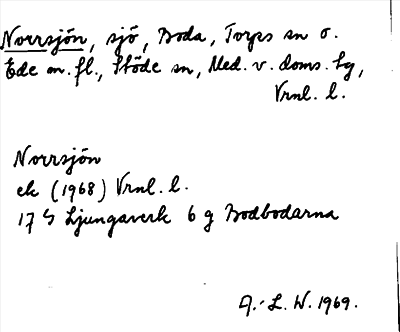 Norrsjön, sjö, Boda, Torps sn o.
Ede m.fl., Stöde sn, Med. v. doms. tg,
Vrnl. l.
Norrsjön
ek (1968) Vrnl. l.
17 G Ljungaverk 6 g Bodbodarna
A.-L. W. 1969.